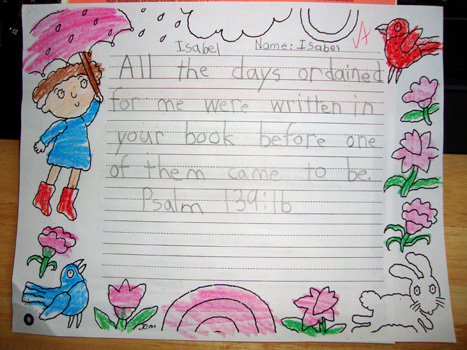 Isabel Name: Isabel
A
All the days ordained
for me were written in
your book before one
of them came to be.
Psalm 139:16